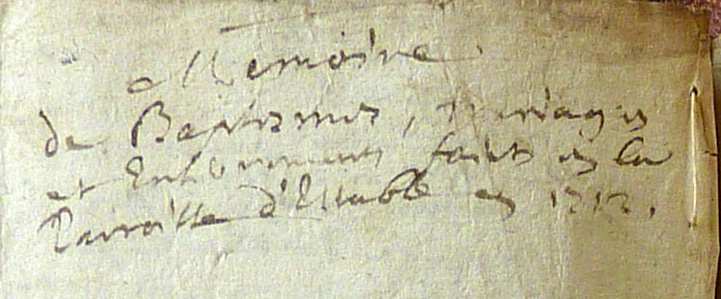 Memoire
de Baptismes, mariages
et Enterremens faits en la
Parroisse d'Estable en 1712.